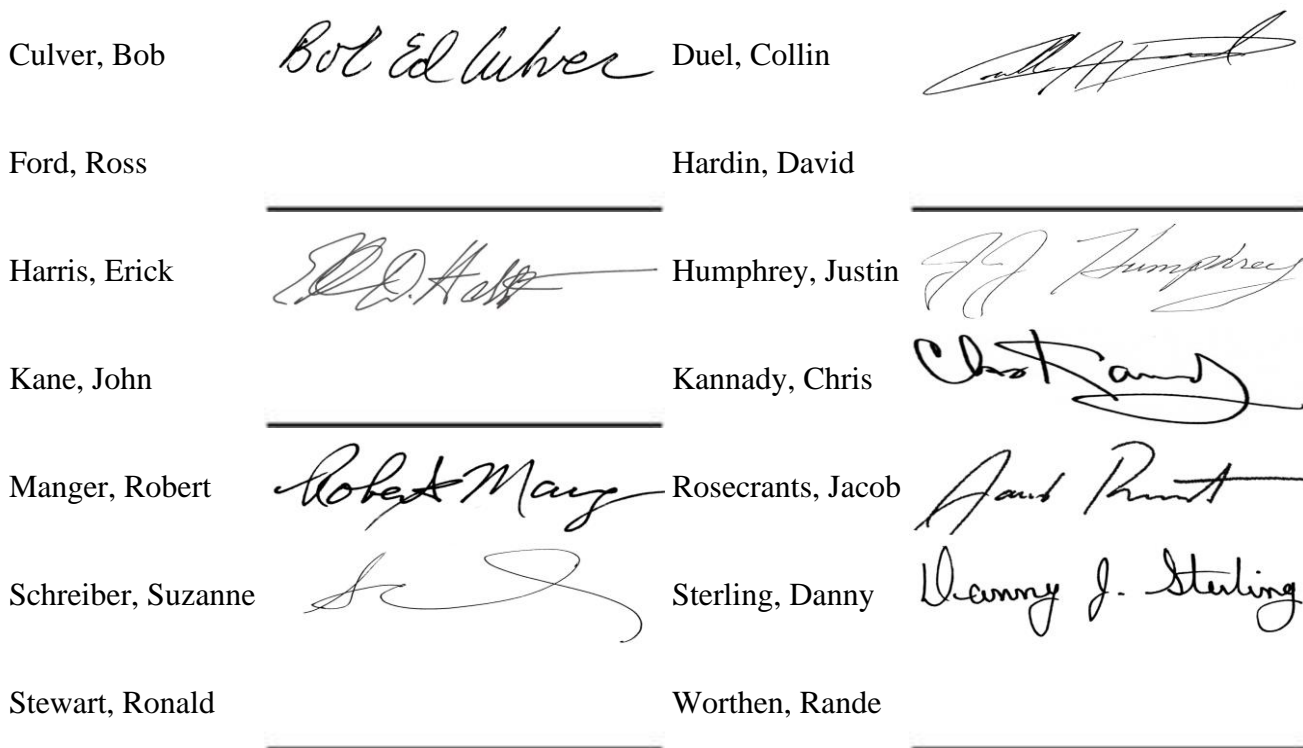 Culver, Bob Bob Ed Culver Duel, Collin
Ford, Ross Hardin, David
Harris, Erick Humphrey, Justin JJ Humphrey
Kane, John Kannady, Chris
Manger, Robert Robert Mang Rosecrants, Jacob
Schreiber, Suzanne Sterling, Danny Danny J. Sterling
Stewart, Ronald Worthen, Rande